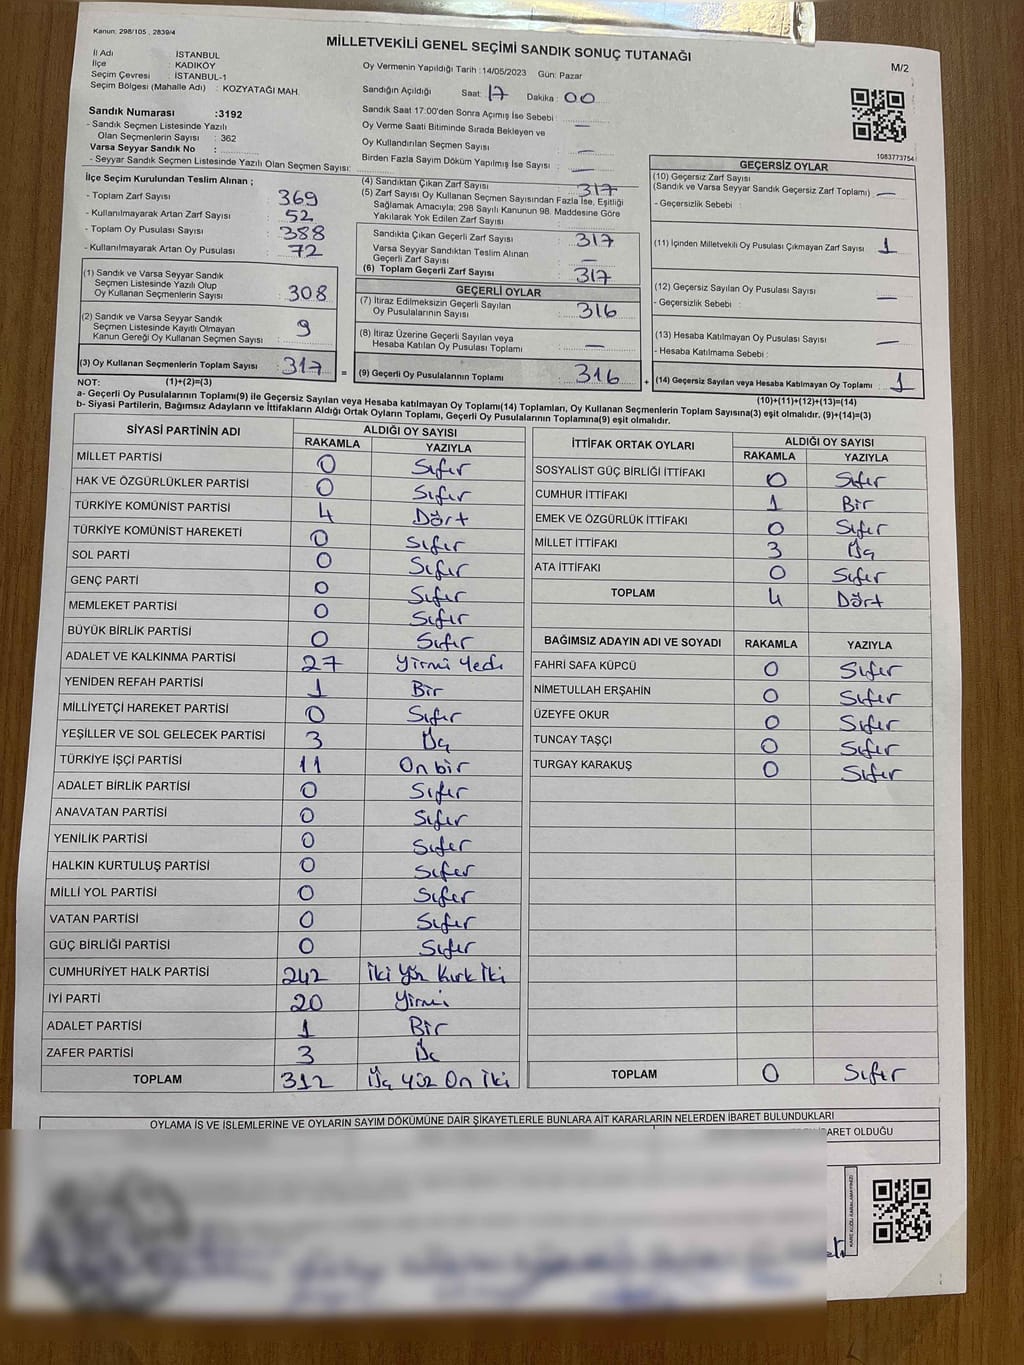 Kanun: 298/105 , 2839/4
MİLLETVEKİLİ GENEL SEÇİMİ SANDIK SONUÇ TUTANAĞI
M/2
İl Adı : İSTANBUL
İlçe : KADIKÖY
Seçim Çevresi : İSTANBUL-1
Seçim Bölgesi (Mahalle Adı) : KOZYATAĞI MAH.
Oy Vermenin Yapıldığı Tarih :14/05/2023 Gün: Pazar
Sandığın Açıldığı Saat: 17 Dakika : 00
Sandık Saat 17:00'den Sonra Açımış İse Sebebi :
Oy Verme Saati Bitiminde Sırada Bekleyen ve
Oy Kullandırılan Seçmen Sayısı : —
Birden Fazla Sayım Döküm Yapılmış İse Sayısı : —
Sandık Numarası :3192
- Sandık Seçmen Listesinde Yazılı
Olan Seçmenlerin Sayısı : 362
Varsa Seyyar Sandık No :
- Seyyar Sandık Seçmen Listesinde Yazılı Olan Seçmen Sayısı:
1083773754
İlçe Seçim Kurulundan Teslim Alınan ;
- Toplam Zarf Sayısı : 369
- Kullanılmayarak Artan Zarf Sayısı : 52
- Toplam Oy Pusulası Sayısı : 388
- Kullanılmayarak Artan Oy Pusulası : 72
(1) Sandık ve Varsa Seyyar Sandık
Seçmen Listesinde Yazılı Olup
Oy Kullanan Seçmenlerin Sayısı : 308
(2) Sandık ve Varsa Seyyar Sandık
Seçmen Listesinde Kayıtlı Olmayan
Kanun Gereği Oy Kullanan Seçmen Sayısı : 9
(3) Oy Kullanan Seçmenlerin Toplam Sayısı : 317
(4) Sandıktan Çıkan Zarf Sayısı : 317
(5) Zarf Sayısı Oy Kullanan Seçmen Sayısından Fazla İse, Eşitliği
Sağlamak Amacıyla; 298 Sayılı Kanunun 98. Maddesine Göre
Yakılarak Yok Edilen Zarf Sayısı :
Sandıkta Çıkan Geçerli Zarf Sayısı : 317
Varsa Seyyar Sandıktan Teslim Alınan
Geçerli Zarf Sayısı : —
(6) Toplam Geçerli Zarf Sayısı : 317
GEÇERLİ OYLAR
(7) İtiraz Edilmeksizin Geçerli Sayılan
Oy Pusulalarının Sayısı : 316
(8) İtiraz Üzerine Geçerli Sayılan veya
Hesaba Katılan Oy Pusulası Toplamı : —
= (9) Geçerli Oy Pusulalarının Toplamı : 316
GEÇERSİZ OYLAR
(10) Geçersiz Zarf Sayısı
(Sandık ve Varsa Seyyar Sandık Geçersiz Zarf Toplamı) : —
- Geçersizlik Sebebi :
(11) İçinden Milletvekili Oy Pusulası Çıkmayan Zarf Sayısı : 1
(12) Geçersiz Sayılan Oy Pusulası Sayısı : —
- Geçersizlik Sebebi :
(13) Hesaba Katılmayan Oy Pusulası Sayısı : —
- Hesaba Katılmama Sebebi :
+ (14) Geçersiz Sayılan veya Hesaba Katılmayan Oy Toplamı : 1
NOT: (1)+(2)=(3)
(10)+(11)+(12)+(13)=(14)
a- Geçerli Oy Pusulalarının Toplamı(9) ile Geçersiz Sayılan veya Hesaba katılmayan Oy Toplamı(14) Toplamları, Oy Kullanan Seçmenlerin Toplam Sayısına(3) eşit olmalıdır. (9)+(14)=(3)
b- Siyasi Partilerin, Bağımsız Adayların ve İttifakların Aldığı Ortak Oyların Toplamı, Geçerli Oy Pusulalarının Toplamına(9) eşit olmalıdır.
SİYASİ PARTİNİN ADI ALDIĞI OY SAYISI
RAKAMLA YAZIYLA
MİLLET PARTİSİ 0 Sıfır
HAK VE ÖZGÜRLÜKLER PARTİSİ 0 Sıfır
TÜRKİYE KOMÜNİST PARTİSİ 4 Dört
TÜRKİYE KOMÜNİST HAREKETİ 0 Sıfır
SOL PARTİ 0 Sıfır
GENÇ PARTİ 0 Sıfır
MEMLEKET PARTİSİ 0 Sıfır
BÜYÜK BİRLİK PARTİSİ 0 Sıfır
ADALET VE KALKINMA PARTİSİ 27 Yirmi Yedi
YENİDEN REFAH PARTİSİ 1 Bir
MİLLİYETÇİ HAREKET PARTİSİ 0 Sıfır
YEŞİLLER VE SOL GELECEK PARTİSİ 3 Üç
TÜRKİYE İŞÇİ PARTİSİ 11 On bir
ADALET BİRLİK PARTİSİ 0 Sıfır
ANAVATAN PARTİSİ 0 Sıfır
YENİLİK PARTİSİ 0 Sıfır
HALKIN KURTULUŞ PARTİSİ 0 Sıfır
MİLLİ YOL PARTİSİ 0 Sıfır
VATAN PARTİSİ 0 Sıfır
GÜÇ BİRLİĞİ PARTİSİ 0 Sıfır
CUMHURİYET HALK PARTİSİ 242 İki Yüz Kırk İki
İYİ PARTİ 20 Yirmi
ADALET PARTİSİ 1 Bir
ZAFER PARTİSİ 3 Üç
TOPLAM 312 Üç Yüz On İki
İTTİFAK ORTAK OYLARI ALDIĞI OY SAYISI
RAKAMLA YAZIYLA
SOSYALİST GÜÇ BİRLİĞİ İTTİFAKI 0 Sıfır
CUMHUR İTTİFAKI 1 Bir
EMEK VE ÖZGÜRLÜK İTTİFAKI 0 Sıfır
MİLLET İTTİFAKI 3 Üç
ATA İTTİFAKI 0 Sıfır
TOPLAM 4 Dört
BAĞIMSIZ ADAYIN ADI VE SOYADI RAKAMLA YAZIYLA
FAHRİ SAFA KÜPCÜ 0 Sıfır
NİMETULLAH ERŞAHİN 0 Sıfır
ÜZEYFE OKUR 0 Sıfır
TUNCAY TAŞÇI 0 Sıfır
TURGAY KARAKUŞ 0 Sıfır
TOPLAM 0 Sıfır
OYLAMA İŞ VE İŞLEMLERİNE VE OYLARIN SAYIM DÖKÜMÜNE DAİR ŞİKAYETLERLE BUNLARA AİT KARARLARIN NELERDEN İBARET BULUNDUKLARI
BARET OLDUĞU
KARE KODU KARALAMAYINIZ!